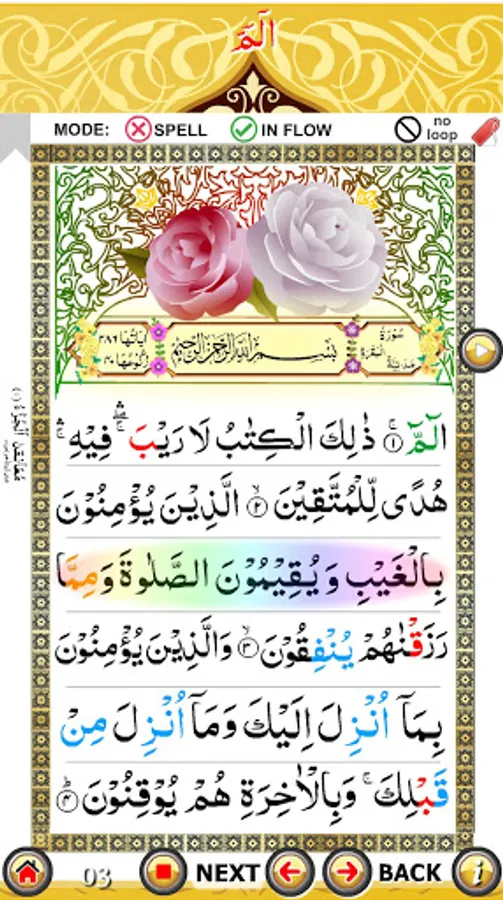 الٓمّٓ
MODE: SPELL IN FLOW no loop
سُوْرَةُ الْبَقَرَةِ مَدَنِيَّةٌ
بِسْمِ اللهِ الرَّحْمٰنِ الرَّحِيْمِ
اٰيَاتُهَا ٢٨٦ رُكُوْعُهَا ٤٠
الٓمّٓ ۚ ﴿۱﴾ ذٰلِكَ الْكِتٰبُ لَا رَيْبَ ۛۖ فِيْهِ ۛۚ
هُدًى لِّلْمُتَّقِيْنَ ۙ ﴿۲﴾ الَّذِيْنَ يُؤْمِنُوْنَ
بِالْغَيْبِ وَيُقِيْمُوْنَ الصَّلٰوةَ وَمِمَّا
رَزَقْنٰهُمْ يُنْفِقُوْنَ ۙ ﴿۳﴾ وَالَّذِيْنَ يُؤْمِنُوْنَ
بِمَآ اُنْزِلَ اِلَيْكَ وَمَآ اُنْزِلَ مِنْ
قَبْلِكَ ۚ وَبِالْاٰخِرَةِ هُمْ يُوْقِنُوْنَ ؕ ﴿۴﴾
03 NEXT BACK i